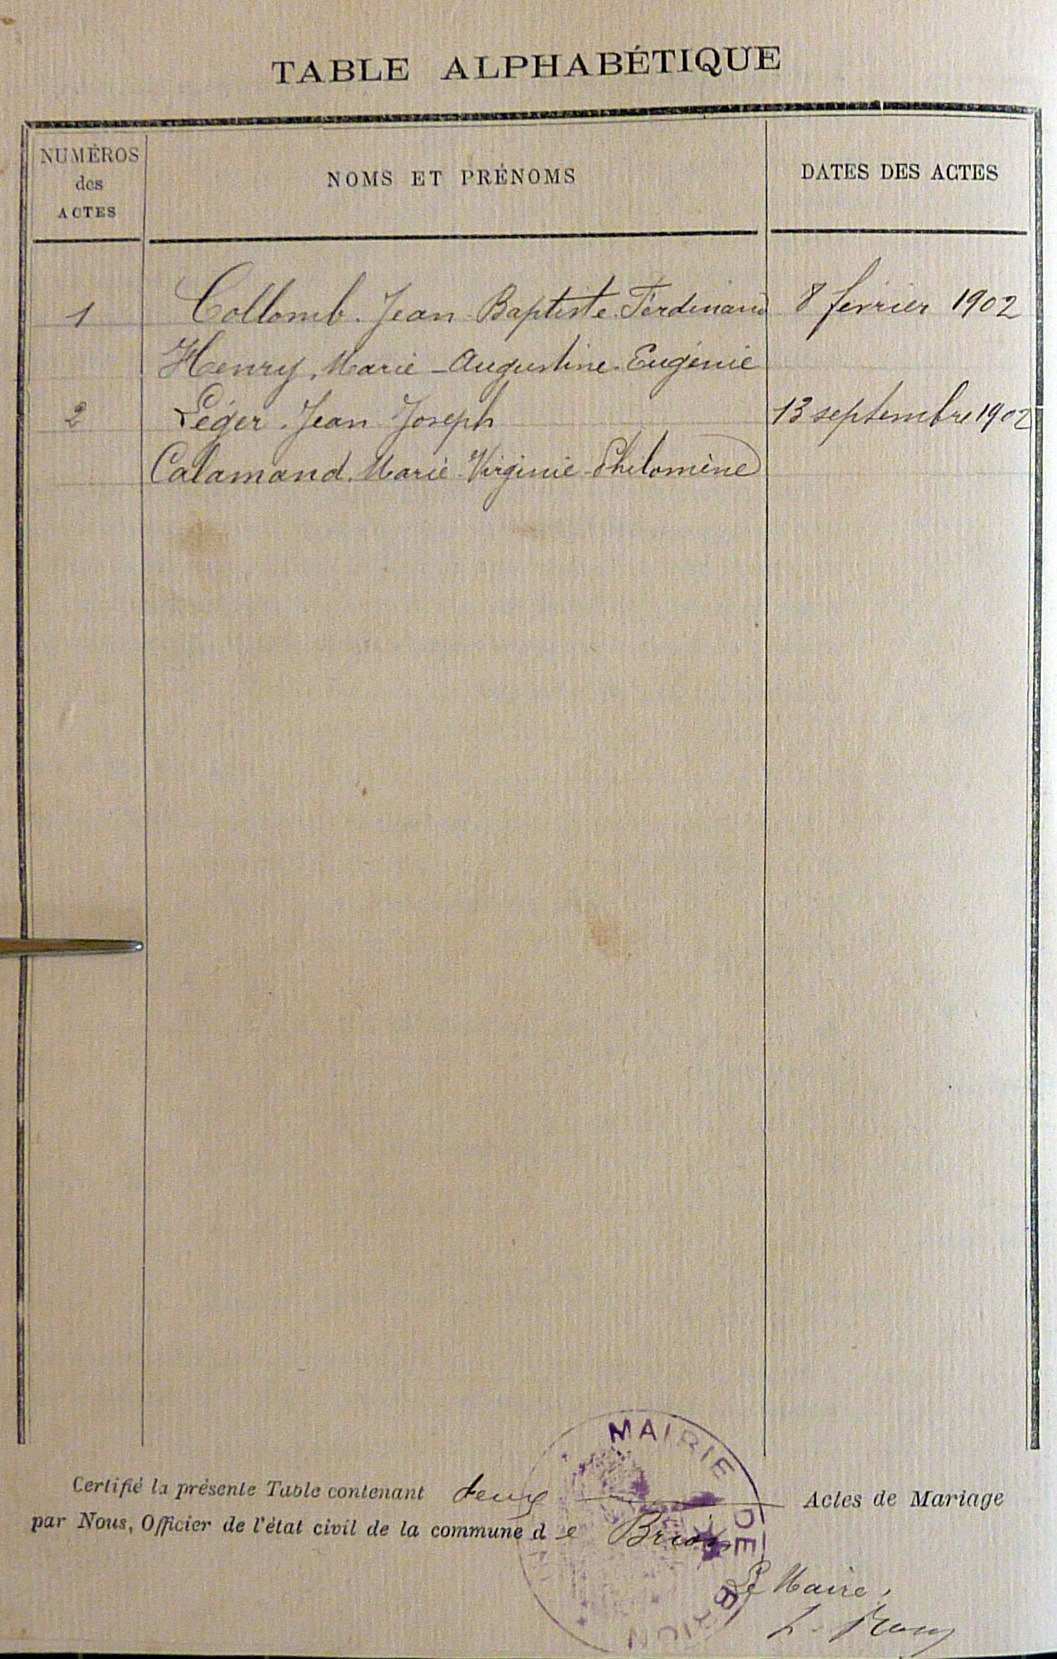 TABLE ALPHABÉTIQUE
NUMÉROS des ACTES
NOMS ET PRÉNOMS
DATES DES ACTES
1 Collomb. Jean Baptiste Ferdinand 8 février 1902
Henry, Marie-Augustine-Eugénie
2 Léger. Jean Joseph 13 septembre 1902
Calamand. Marie Virginie Philomène
Certifié la présente Table contenant deux Actes de Mariage
par Nous, Officier de l'état civil de la commune de Brion
MAIRIE DE BRION
Le Maire,